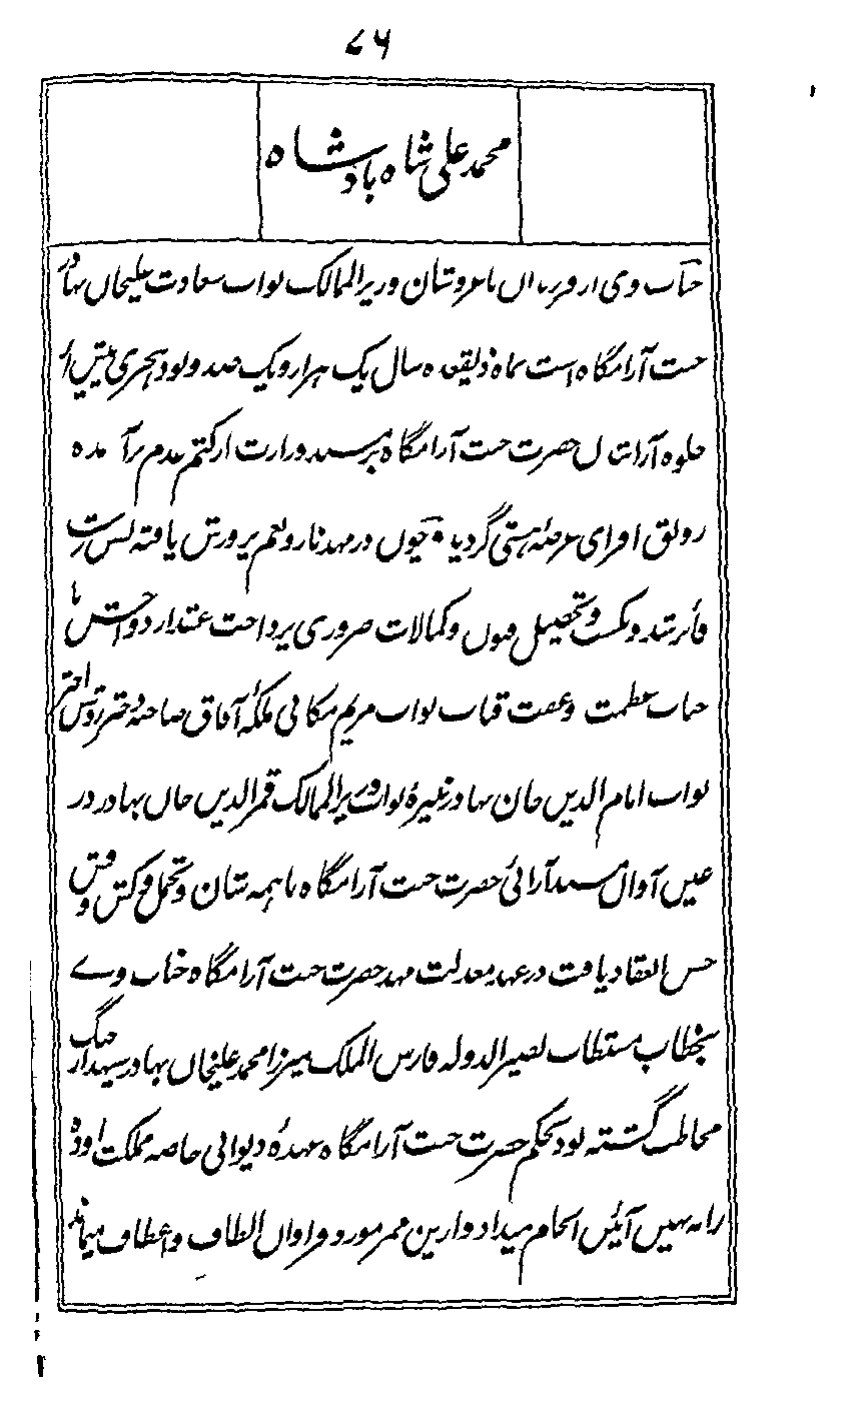 ۷۶
محمد علی شاه بادشاه
جناب وی از فرزندان نامور و شان وزیر الممالک نواب سعادت علیخان بهادر
جنت آرامگاه است بماه ذیقعده سال یک هزار و یک صد و نود هجری پیش از
جلوه آرائی حضرت جنت آرامگاه بر مسند وزارت از کتم عدم برآمده
رونق افزای عرصهٔ هستی گردید و چون در مهد ناز و نعم پرورش یافته بسن
فائز شد و بکسب و تحصیل فنون و کمالات ضروری پرداخت عقد ازدواجش با
جناب عظمت و عفت قباب نواب مریم مکانی ملکهٔ آفاق صاحبه دختر روشن اختر
نواب امام الدین خان بهادر نبیرهٔ نواب وزیر الممالک قمر الدین خان بهادر در
عین آوان مسند آرائی حضرت جنت آرامگاه با همه شان و تجمل و کش و فش
حسن انعقاد یافت در عهد معدلت مهد حضرت جنت آرامگاه جناب وے
بخطاب مستطاب نصیر الدوله فارس الملک میرزا محمد علیخان بهادر سپهدار جنگ
مخاطب گشته بود بحکم حضرت جنت آرامگاه عهدهٔ دیوانی خاصه مملکت اوده
را به بهین آئین انجام میداد و ازین ممر مورد فراوان الطاف و اعطاف میماند